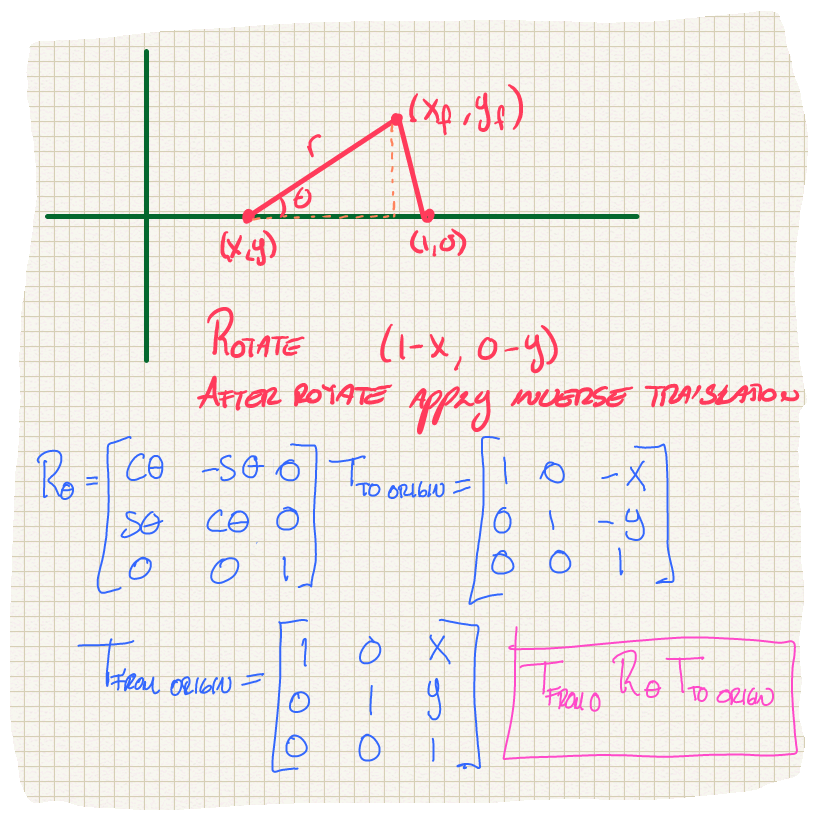 (xf, yf)
r
θ
(x,y)
(1,0)
ROTATE (1-x, 0-y)
AFTER ROTATE apply INVERSE TRANSLATION
Rθ = [ cθ -sθ 0
sθ cθ 0
0 0 1 ]
T TO ORIGIN = [ 1 0 -x
0 1 -y
0 0 1 ]
T FROM ORIGIN = [ 1 0 x
0 1 y
0 0 1 ]
T FROM O Rθ T TO ORIGIN